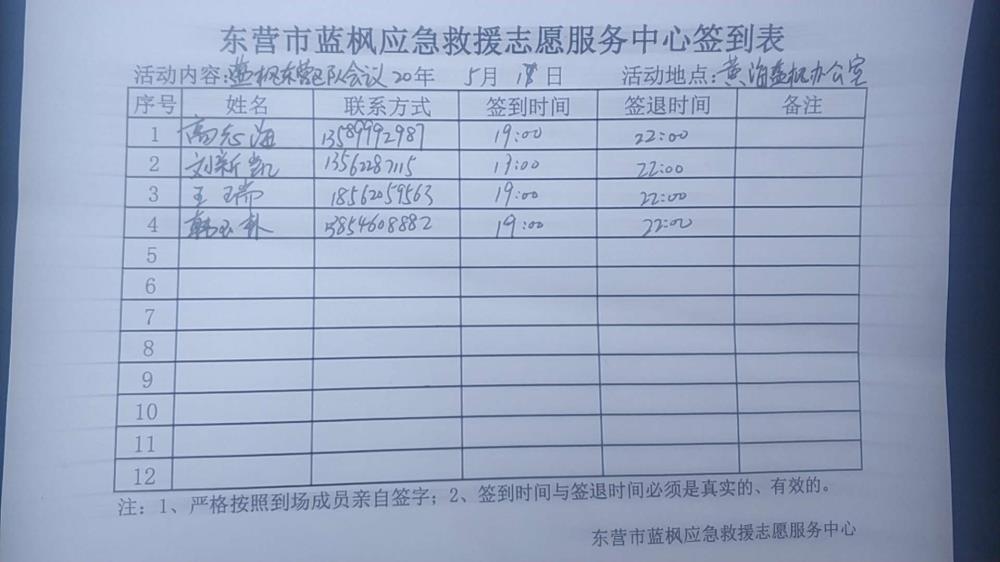 东营市蓝枫应急救援志愿服务中心签到表
活动内容:蓝枫东营区队会议 20年 5月 18日 活动地点:黄海蓝枫办公室
序号 姓名 联系方式 签到时间 签退时间 备注
1 高志海 13589992987 19:00 22:00
2 刘新凯 13562287115 19:00 22:00
3 王瑞 18562059563 19:00 22:00
4 韩玉林 13854608882 19:00 22:00
5
6
7
8
9
10
11
12
注:1、严格按照到场成员亲自签字;2、签到时间与签退时间必须是真实的、有效的。
东营市蓝枫应急救援志愿服务中心